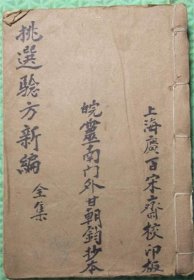 上海廣百宋齋校印板
皖靈南門外甘朝釗抄本
挑選驗方新編 全集